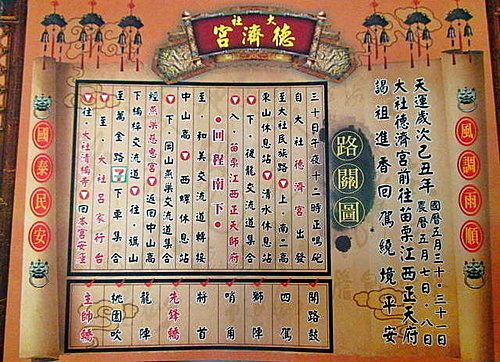 大社
德濟宮
風調雨順
國泰民安
天運歲次己丑年 國曆五月三十、三十一日 農曆五月七日、八日
大社德濟宮前往苗栗江西正天府
謁祖進香回駕繞境平安
路關圖
三十日午夜十二時正鳴砲
自大社德濟宮出發
至大社民族路 上南二高
東山休息站 清水休息站
下·後龍交流道集合
入 苗栗江西正天師府
回程南下
至·和美交流道轉接
中山高 西螺休息站
下·岡山燕巢交流道集合
經燕巢慈惠宮 返回中山高
下楠梓交流道 往·旗山
至萬金路 7 下車集合
至·大社呂家行台
往·大社清福寺 回本宮安座
開路鼓
四駕
獅陣
哨角
將首
先鋒轎
龍陣
桃園吹
主帥轎